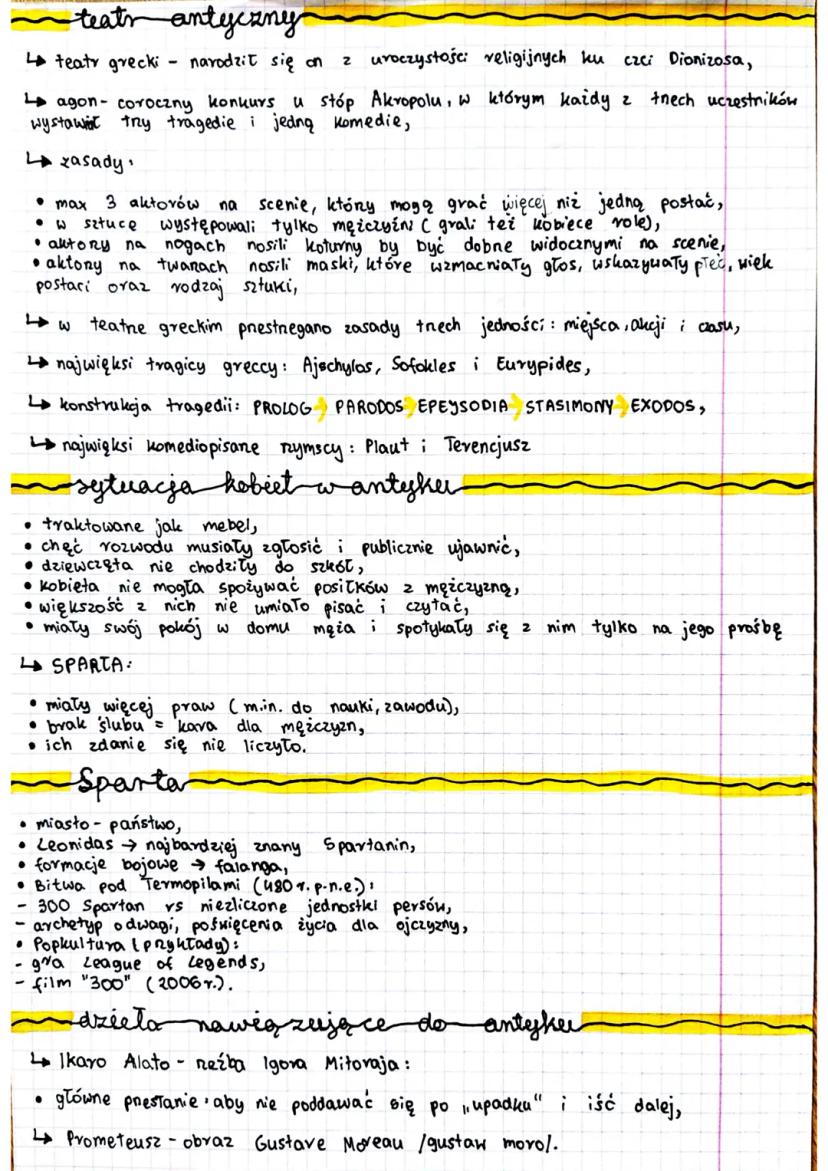 teatr antyczny
↳ teatr grecki - narodził się on z uroczystości religijnych ku czci Dionizosa,
↳ agon - coroczny konkurs u stóp Akropolu, w którym każdy z trzech uczestników
wystawiał trzy tragedie i jedną komedie,
↳ zasady:
• max 3 aktorów na scenie, który mogą grać więcej niż jedną postać,
• w sztuce występowali tylko mężczyźni (grali też kobiece role),
• aktorzy na nogach nosili koturny by być dobrze widocznymi na scenie,
• aktorzy na twarzach nosili maski, które wzmacniały głos, wskazywały płeć, wiek
postaci oraz rodzaj sztuki,
↳ w teatrze greckim przestrzegano zasady trzech jedności: miejsca, akcji i czasu,
↳ najwięksi tragicy greccy: Ajschylos, Sofokles i Eurypides,
↳ konstrukcja tragedii: PROLOG → PARODOS → EPEJSODIA → STASIMONY → EXODOS,
↳ najwięksi komediopisarze rzymscy: Plaut i Terencjusz
sytuacja kobiet w antyku
• traktowane jak mebel,
• chęć rozwodu musiały zgłosić i publicznie ujawnić,
• dziewczęta nie chodziły do szkół,
• kobieta nie mogła spożywać posiłków z mężczyzną,
• większość z nich nie umiało pisać i czytać,
• miały swój pokój w domu męża i spotykały się z nim tylko na jego prośbę
↳ SPARTA:
• miały więcej praw (m.in. do nauki, zawodu),
• brak ślubu = kara dla mężczyzn,
• ich zdanie się nie liczyło.
Sparta
• miasto - państwo,
• Leonidas → najbardziej znany Spartanin,
• formacje bojowe → falanga,
• Bitwa pod Termopilami (480 r. p.n.e.):
- 300 Spartan vs niezliczone jednostki persów,
- archetyp odwagi, poświęcenia życia dla ojczyzny,
• Popkultura (przykłady):
- gra League of Legends,
- film "300" (2006 r.).
dzieła nawiązujące do antyku
↳ Ikaro Alato - rzeźba Igora Mitoraja:
• główne przesłanie: aby nie poddawać się po „upadku" i iść dalej,
↳ Prometeusz - obraz Gustave Moreau /gustaw moro/.